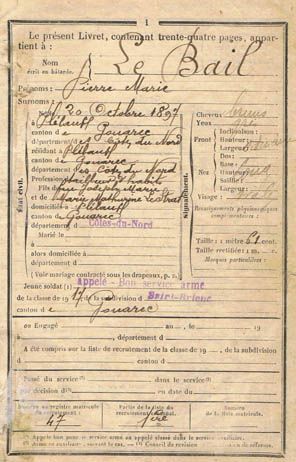 1
Le présent Livret, contenant trente-quatre pages, appar-
tient à :
Nom Le Bail
écrit en bâtarde.
Prénoms : Pierre Marie
Surnoms :
né le 20 Octobre 1897
à Plélauff
canton de Gouarec
département des Côtes du Nord
résidant à Plélauff
canton de Gouarec
département des Côtes du Nord
Profession de
Fils de feu Joseph Marie
et de Marie Mathurine
domiciliés à Plélauff
canton de Gouarec
département d Côtes-du-Nord
Marié le
alors domiciliée à
département d
État civil.
Signalement.
Cheveux
Yeux
Front
Inclinaison :
Hauteur :
Largeur :
Nez
Dos :
Base :
Hauteur :
Visage :
Renseignements physionomiques
complémentaires :
Taille : 1 mètre 61 cent.
Taille rectifiée : 1 m. cent.
Marques particulières :
(Voir mariage contracté sous les drapeaux, p. )
Jeune soldat (1) appelé - Bon service armé
de la classe de 1917 de la subdivision d Saint-Brieuc
canton d e Gouarec
ou Engagé au 19
à , département d
A été compris sur la liste de recrutement de la classe de 19 , de la subdivision
d canton d
Passé du service (2) dans le service (2)
par décision d en date du
Numéro au registre matricule
du recrutement
47
Partie de la liste du
recrutement cantonal.
1ère
Numéro
de la liste matricule.
(1) Appelé bon pour le service armé ou appelé classé dans le service auxiliaire.